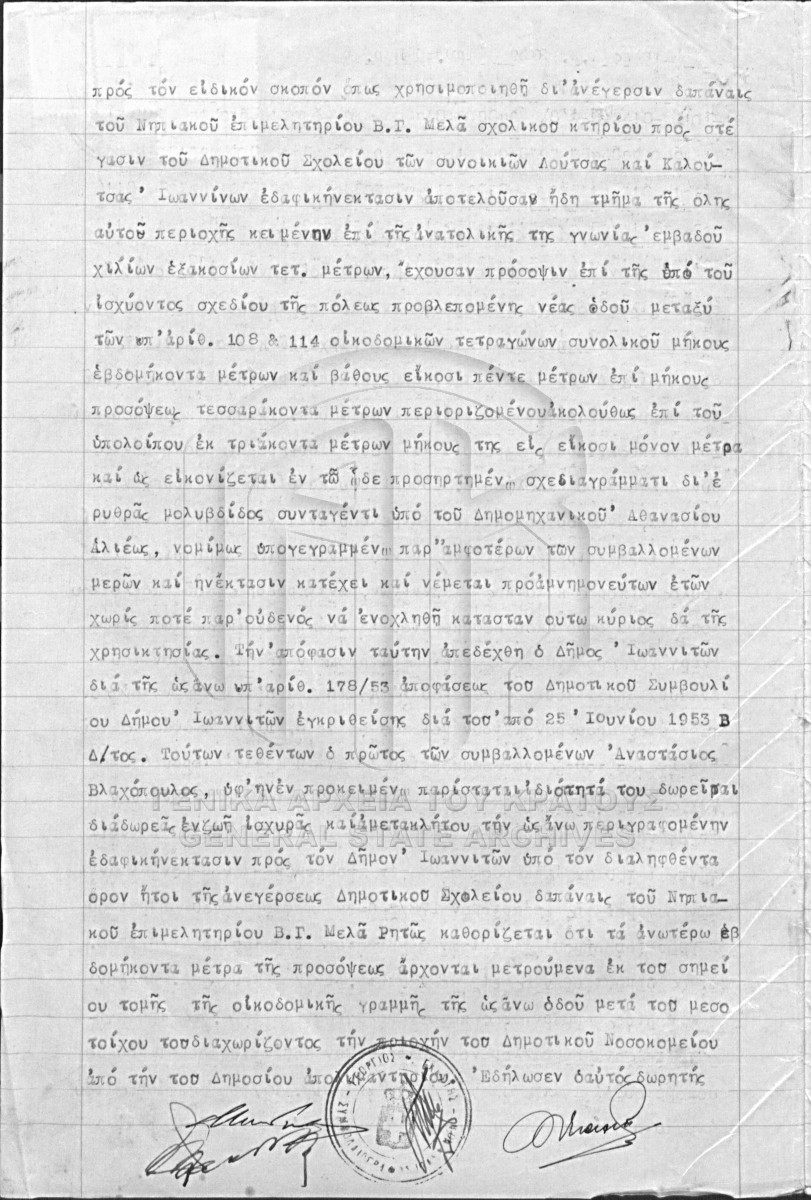 πρός τόν εἰδικόν σκοπόν ὅπως χρησιμοποιηθῇ δι'ἀνέγερσιν δαπάναις
τοῦ Νηπιακοῦ ἐπιμελητηρίου Β.Γ. Μελᾶ σχολικοῦ κτηρίου πρός στέ
γασιν τοῦ Δημοτικοῦ Σχολείου τῶν συνοικιῶν Λούτσας καί Καλού-
τσας 'Ιωαννίνων ἐδαφικήνεκτασιν ἀποτελοῦσαν ἤδη τμῆμα τῆς ὅλης
αὐτοῦ περιοχῆς κειμένην ἐπί τῆς ἀνατολικῆς της γωνίας 'εμβαδοῦ
χιλίων ἑξακοσίων τετ. μέτρων, ἔχουσαν πρόσοψιν ἐπί τῆς ὑπό τοῦ
ἰσχύοντος σχεδίου τῆς πόλεως προβλεπομένης νέας ὁδοῦ μεταξύ
τῶν ὑπ'ἀριθ. 108 & 114 οἰκοδομικῶν τετραγώνων συνολικοῦ μήκους
ἑβδομήκοντα μέτρων καί βάθους εἴκοσι πέντε μέτρων ἐπί μήκους
προσόψεως τεσσαράκοντα μέτρων περιοριζομένουἀκολούθως ἐπί τοῦ
ὑπολοίπου ἐκ τριάκοντα μέτρων μήκους της εἰς εἴκοσι μόνον μέτρα
καί ὡς εἰκονίζεται ἐν τῷ ὧδε προσηρτημένῳ σχεδιαγράμματι δι'ἐ
ρυθρᾶς μολυβδίδος συνταγέντι ὑπό τοῦ Δημομηχανικοῦ 'Αθανασίου
Ἁλιέως, νομίμως ὑπογεγραμμένῳ παρ'ἀμφοτέρων τῶν συμβαλλομένων
μερῶν καί ἠνέκτασιν κατέχει καί νέμεται πρόἀμνημονεύτων ἐτῶν
χωρίς ποτέ παρ'οὐδενός νά ἐνοχληθῇ κατασταν ουτω κύριος δά τῆς
χρησικτησίας. Τήν'ἀπόφασιν ταύτην ἀπεδέχθη ὁ Δῆμος 'Ιωαννιτῶν
διά τῆς ὡς ἄνω ὑπ'ἀριθ. 178/53 ἀποφάσεως τοῦ Δημοτικοῦ Συμβουλί
ου Δήμου' Ιωαννιτῶν ἐγκριθείσης διά τοῦ'ἀπό 25 'Ιουνίου 1953 Β
Δ/τος. Τούτων τεθέντων ὁ πρῶτος τῶν συμβαλλομένων 'Αναστάσιος
Βλαχόπουλος, ὑφ'ἥνἐν προκειμένῳ παρίσταταιἰδιότητά του δωρεῖται
διάδωρεᾶς ἐνζωῇ ἰσχυρᾶς καίἀμετακλήτου τήν ὡς ἄνω περιγραφομένην
ἐδαφικήνεκτασιν πρός τόν Δῆμον' Ιωαννιτῶν ὑπό τόν διαληφθέντα
ὅρον ἤτοι τῆςἀνεγέρσεως Δημοτικοῦ Σχολείου δαπάναις τοῦ Νηπια-
κοῦ ἐπιμελητηρίου Β.Γ. Μελᾶ Ρητῶς καθορίζεται ὅτι τά ἀνωτέρω ἑβ
δομήκοντα μέτρα τῆς προσόψεως ἄρχονται μετρούμενα ἐκ τοῦ σημεί
ου τομῆς τῆς οἰκοδομικῆς γραμμῆς τῆς ὡς ἄνω ὁδοῦ μετά τοῦ μεσο
τοίχου τοῦδιαχωρίζοντος τήν περιοχήν τοῦ Δημοτικοῦ Νοσοκομείου
ἀπό τήν τοῦ Δημοσίου 'Εδήλωσεν ὁαὐτός δωρητής
ΓΕΝΙΚΑ ΑΡΧΕΙΑ ΤΟΥ ΚΡΑΤΟΥΣ
GENERAL STATE ARCHIVES